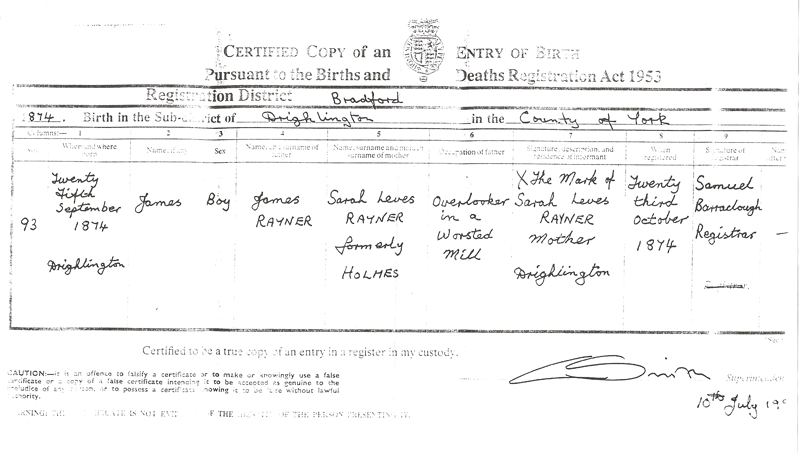 CERTIFIED COPY of an ENTRY OF BIRTH
Pursuant to the Births and Deaths Registration Act 1953
Registration District Bradford
1874. Birth in the Sub-district of Drighlington in the County of York
Columns:— 1 2 3 4 5 6 7 8 9
No. When and where born Name, if any Sex Name, and surname of father Name, surname and maiden surname of mother Occupation of father Signature, description, and residence of informant When registered Signature of registrar
93 Twenty Fifth September 1874 Drighlington
James
Boy
James RAYNER
Sarah Leves RAYNER formerly HOLMES
Overlooker in a Worsted Mill
X The Mark of Sarah Leves RAYNER Mother Drighlington
Twenty third October 1874
Samuel Barraclough Registrar
—
Certified to be a true copy of an entry in a register in my custody.
Superintendent
10th July 199
CAUTION:—It is an offence to falsify a certificate or to make or knowingly use a false
certificate or a copy of a false certificate intending it to be accepted as genuine to the
prejudice of any person, or to possess a certificate knowing it to be false without lawful
authority.
WARNING: THIS CERTIFICATE IS NOT EVIDENCE OF THE IDENTITY OF THE PERSON PRESENTING IT.